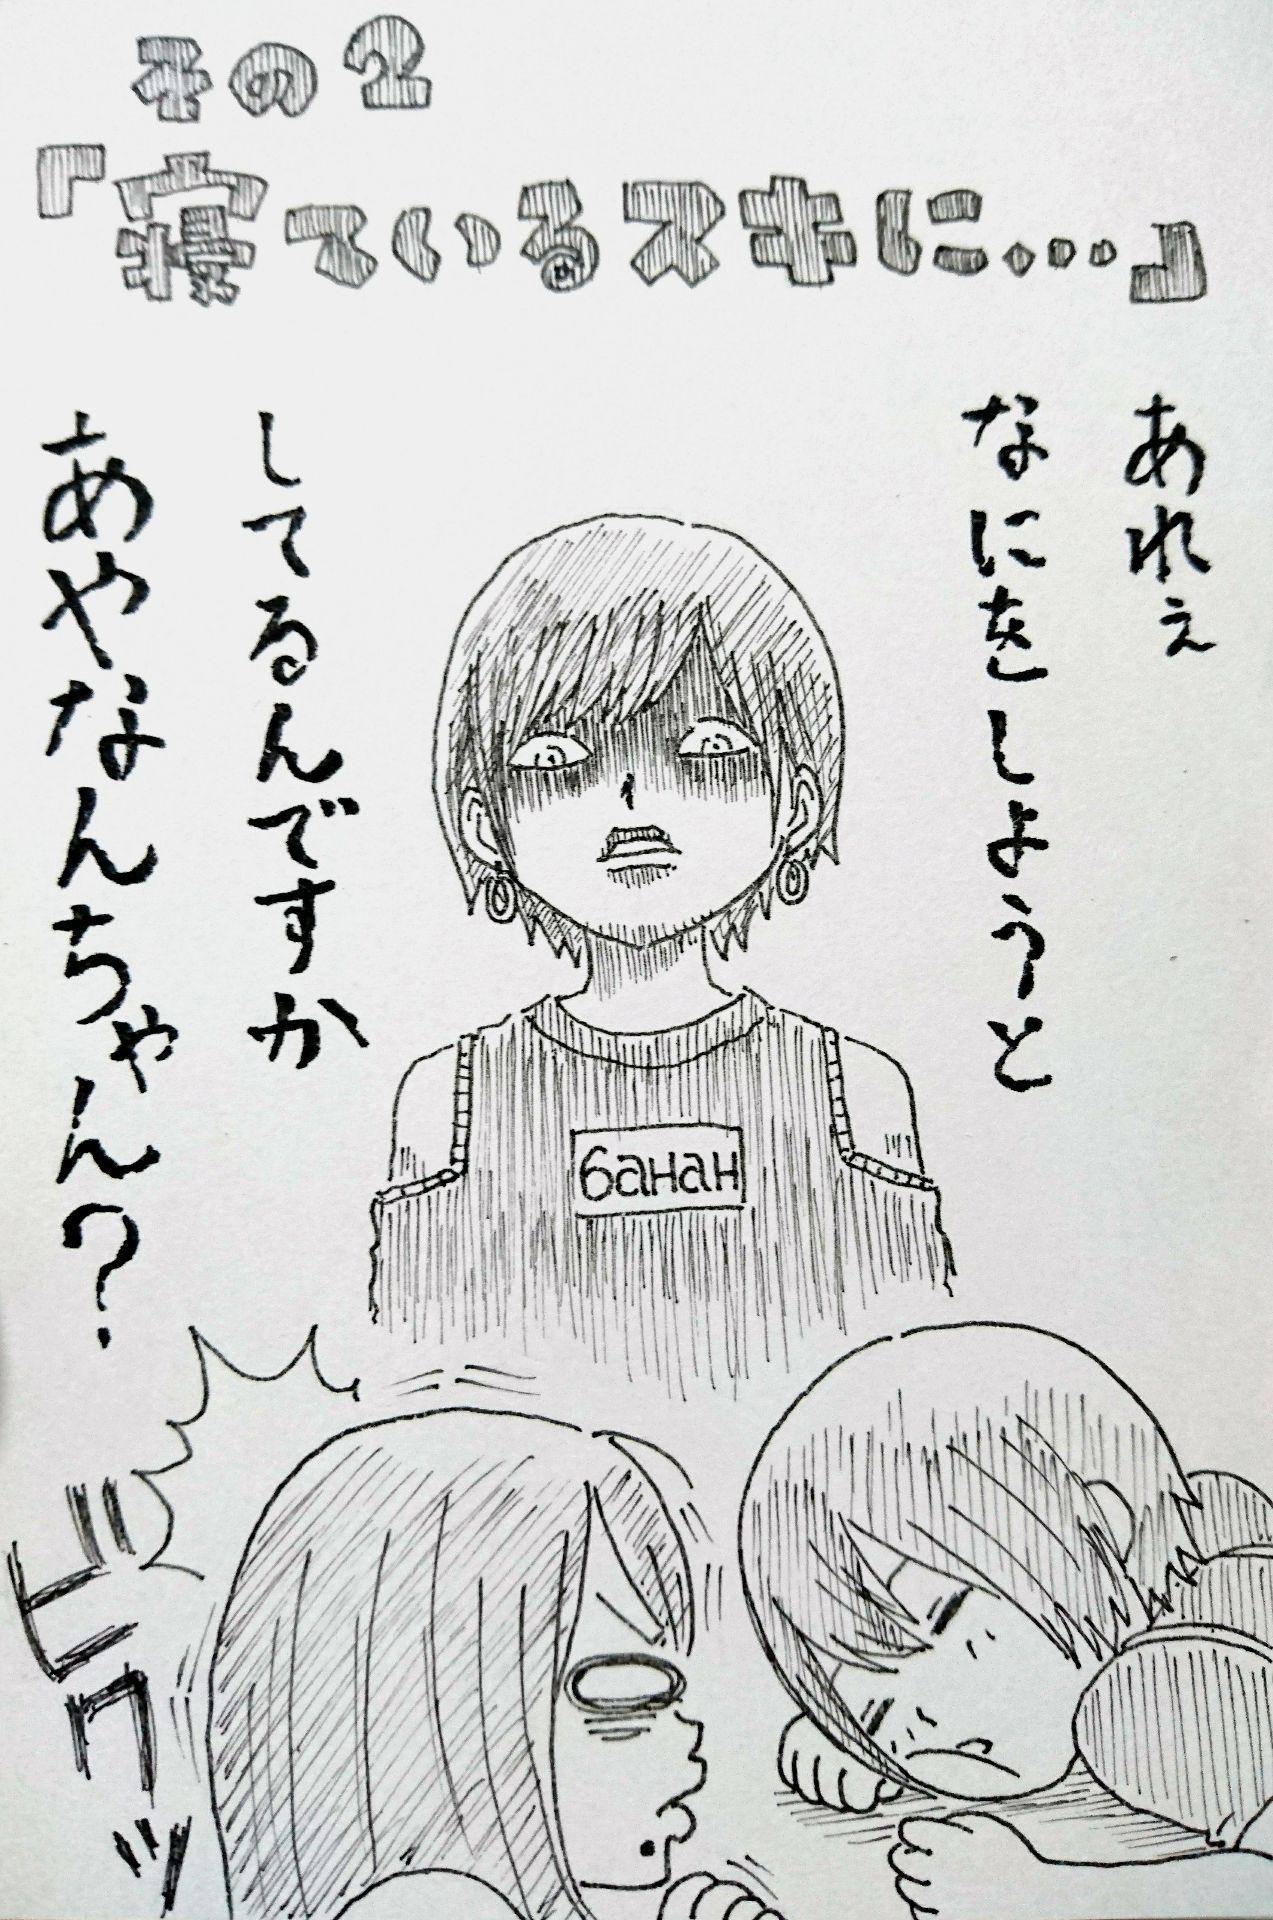 その2
「寝ているスキに...」
あれぇ
なにをしようと
してるんですか
あやなんちゃん?
банан
ビクッ